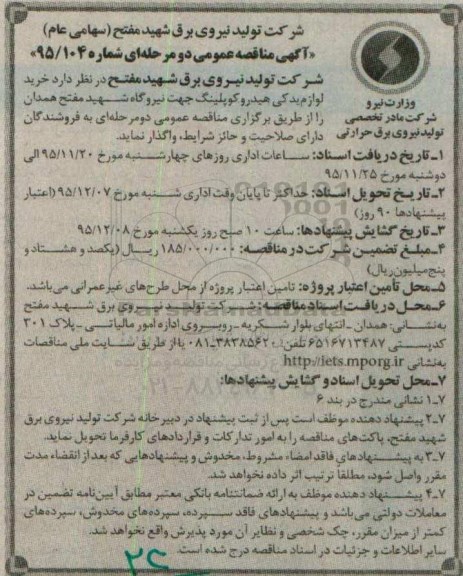 شرکت تولید نیروی برق شهید مفتح (سهامی عام)
«آگهی مناقصه عمومی دو مرحله‌ای شماره ۹۵/۱۰۴»
وزارت نیرو
شرکت مادر تخصصی
تولید نیروی برق حرارتی
شرکت تولید نیروی برق شهید مفتح در نظر دارد خرید
لوازم یدکی هیدروکوپلینگ جهت نیروگاه شهید مفتح همدان
را از طریق برگزاری مناقصه عمومی دومرحله‌ای به فروشندگان
دارای صلاحیت و حائز شرایط، واگذار نماید.
۱ـ تاریخ دریافت اسناد: ساعات اداری روزهای چهارشنبه مورخ ۹۵/۱۱/۲۰ الی
دوشنبه مورخ ۹۵/۱۱/۲۵
۲ـ تاریخ تحویل اسناد: حداکثر تا پایان وقت اداری شنبه مورخ ۹۵/۱۲/۰۷ (اعتبار
پیشنهادها ۹۰ روز)
۳ـ تاریخ گشایش پیشنهادها: ساعت ۱۰ صبح روز یکشنبه مورخ ۹۵/۱۲/۰۸
۴ـ مبلغ تضمین شرکت در مناقصه: ۱۸۵/۰۰۰/۰۰۰ ریال (یکصد و هشتاد و
پنج میلیون ریال)
۵ـ محل تأمین اعتبار پروژه: تامین اعتبار پروژه از محل طرح‌های غیرعمرانی می‌باشد.
۶ـ محل دریافت اسناد مناقصه: شرکت تولید نیروی برق شهید مفتح
به نشانی: همدان ـ انتهای بلوار شکریه ـ روبروی اداره امور مالیاتی ـ پلاک ۳۰۱
کدپستی ۶۵۱۶۷۱۳۴۸۷ تلفن: ۳۸۳۸۵۶۲۰ـ۰۸۱ یا از طریق سایت ملی مناقصات
به نشانی http://iets.mporg.ir
۷ـ محل تحویل اسناد و گشایش پیشنهادها:
۷ـ۱ نشانی مندرج در بند ۶
۷ـ۲ پیشنهاد دهنده موظف است پس از ثبت پیشنهاد در دبیرخانه شرکت تولید نیروی برق
شهید مفتح، پاکت‌های مناقصه را به امور تدارکات و قراردادهای کارفرما تحویل نماید.
۷ـ۳ به پیشنهادهای فاقد امضاء مشروط، مخدوش و پیشنهادهایی که بعد از انقضاء مدت
مقرر واصل شود، مطلقاً ترتیب اثر داده نخواهد شد.
۷ـ۴ پیشنهاد دهنده موظف به ارائه ضمانتنامه بانکی معتبر مطابق آیین‌نامه تضمین در
معاملات دولتی می‌باشد و پیشنهادهای فاقد سپرده، سپرده‌های مخدوش، سپرده‌های
کمتر از میزان مقرر، چک شخصی و نظایر آن مورد پذیرش واقع نخواهد شد.
سایر اطلاعات و جزئیات در اسناد مناقصه درج شده است.